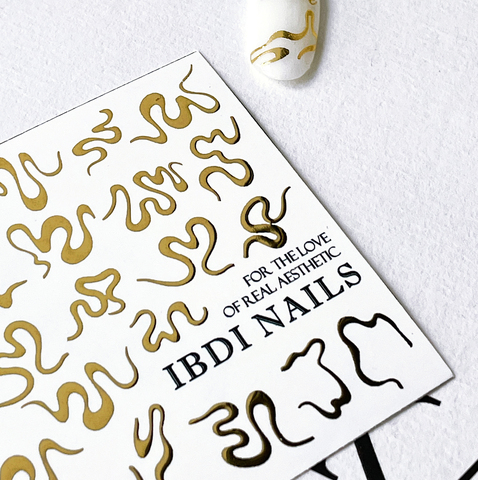 FOR THE LOVE
OF REAL AESTHETIC
IBDI NAILS